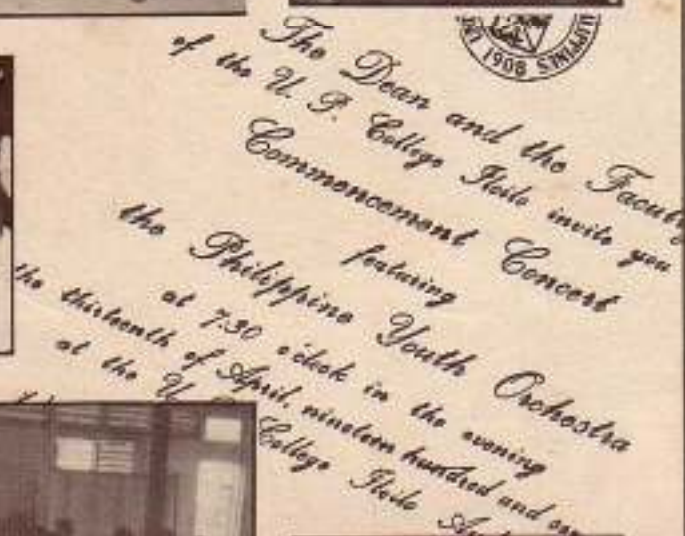 1908
The Dean and the Faculty
of the U. P. College Iloilo invite you
Commencement Concert
featuring
the Philippine Youth Orchestra
at 7:30 o'clock in the evening
the thirteenth of April, nineteen hundred and
at the U. College Iloilo